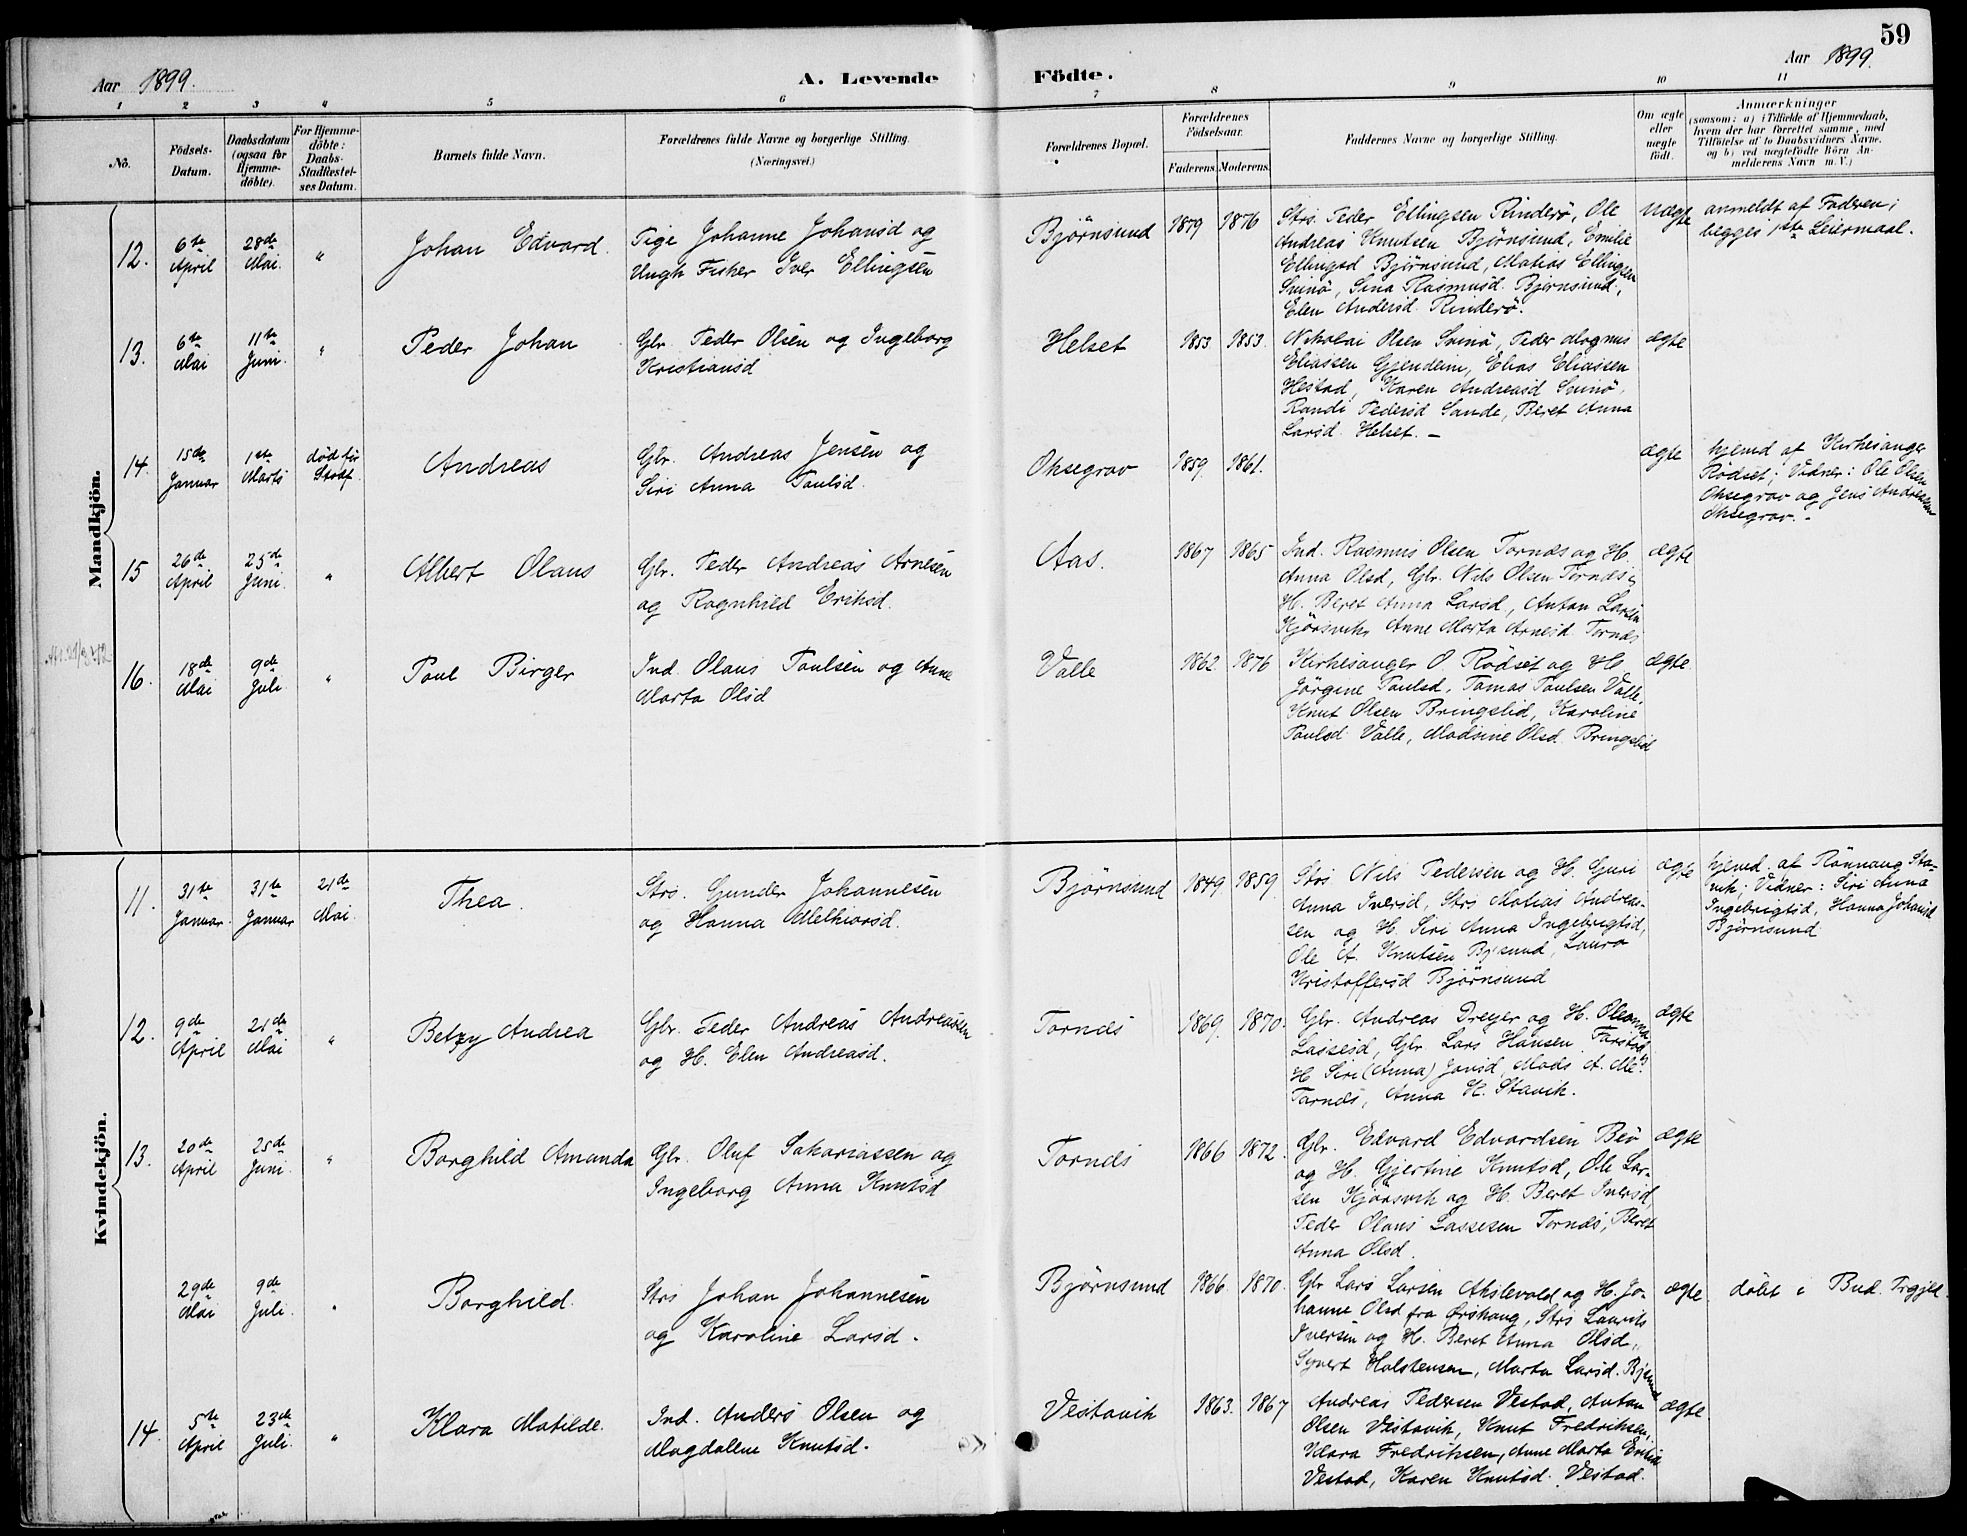 59
Aar 1899.
A. Levende
Födte.
Aar 1899.
1 2 3 4 5 6 7 8 9 10 11
No.
Födsels-
Datum.
Daabsdatum
(ogsaa for
Hjemme-
döbte).
For Hjemme-
döbte:
Daabs-
Stadfestel-
ses Datum.
Barnets fulde Navn.
Forældrenes fulde Navne og borgerlige Stilling.
(Næringsvei.)
Forældrenes Bopæl.
Forældrenes
Födselsaar.
Faderens.
Moderens.
Faddernes Navne og borgerlige Stilling.
Om ægte
eller
uægte
födt.
Anmærkninger
(saasom: a) i Tilfælde af Hjemmedaab,
hvem der har forrettet samme, med
Tilföielse af to Daabsvidners Navne,
og b) ved uægtefödte Börn An-
melderens Navn m. V.)
Mandkjön.
12.
6te
April
28de
Mai.
"
Johan Edvard.
Pige Johanne Johansd og
Ungk Fisker Iver Ellingsen
Björnsund
1879
1876
Strs. Peder Ellingsen Rinderö, Ole
Andreas Knutsen Björnsund, Emilie
Ellingsd Björnsund, Matias Ellingsen
Svinö, Sina Rasmusd. Björnsund,
Elen Andersd. Rinderö.
Uægte
anmeldt af Faderen;
begges 1ste Leiermaal.
13.
6te
Mai
11te
Juni.
"
Peder Johan
Gbr. Peder Olsen og Ingeborg
Kristiansd
Helset
1853
1853.
Nikolai Olsen Svinö, Peder Magnus
Eliassen Gjendem, Elias Eliassen
Hestad, Karen Andreasd Svinö,
Randi Pedersd Sande, Beret Anna
Larsd. Helset. –
ægte
14.
15de
Januar
1ste
Marts
död før
Stadf.
Andreas
Gbr. Andreas Jensen og
Siri Anna Paulsd.
Oksegrav
1859.
1861.
ægte
hjemd af Kirkesanger
Rödset; Vidner: Ole Olsen
Oksegrav og Jens Andreassen
Oksegrav. –
15
26de
April
25de
Juni.
"
Albert Olaus
Gbr. Peder Andreas Arnesen
og Ragnhild Eriksd.
Aas.
1867
1865
Ind. Rasmus Olsen Tornæs og H.
Anna Olsd, Gbr. Nils Olsen Tornæs,
H. Beret Anna Larsd, Anton Larsen
Kjörsvik, Anne Marta Arnesd. Tornæs
ægte
16.
18de
Mai
9de
Juli
"
Paul Birger
Ind. Olaus Paulsen og Anne
Marta Olsd
Valle
1862
1876
Kirkesanger O. Rödset og H.
Jörgine Paulsd, Tomas Paulsen Valle,
Knut Olsen Bringslid, Karoline
Paulsd Valle, Madsine Olsd. Bringslid
ægte.
Kvindekjön.
11.
31te
Januar.
31te
Januar
21de
Mai.
Thea.
Strs. Gunder Johannesen
og Hanna Melkiorsd.
Björnsund
1849
1859.
Strs. Nils Pedersen og H. Guri
Anna Iversd, Strs Matias Andreas-
sen og H. Siri Anna Ingebrigtsd,
Ole A. Knutsen Bj'sund, Laura
Kristoffersd Björnsund
ægte
hjemd. af Rönnaug Sta-
vik; Vidner: Siri Anna
Ingebrigtsd, Hanna Johansd
Björnsund
12.
9de
April
21de
Mai
"
Betzy Andrea
Gbr. Peder Andreas Andreassen
og H. Elen Andreasd.
Tornæs
1869.
1870.
Gbr. Andreas Dreyer og H. Oleanna
Lassesd, Gbr. Lars Hansen Farstad,
H Siri (Anna) Jonsd, Mads A.
Tornæs, Anna K. Stavik.
ægte
13.
20de
April
25de
Juni.
"
Borghild Amanda
Gbr. Oluf Sakariassen og
Ingeborg Anna Knutsd
Tornæs
1866
1872.
Gbr. Edvard Edvardsen Beö
og H. Gjertine Knutsd, Ole Lar-
sen Kjörsvik og H. Beret Iversd,
Peder Olaus Lassesen Tornæs, Beret
Anna Olsd.
ægte
29de
Mai
9de
Juli.
"
Borghild.
Strs Johan Johannesen
og Karoline Larsd.
Björnsund
1866.
1870.
Gbr Lars Larsen Akslevold og H. Jo-
hanne Olsd fra Örskaug, Strs Laurits
Iversen og H. Beret Anna Olsd,
Syvert Halstensen, Marta Larsd. Bj'sund
ægte.
döbt i Bud Prgjld.
14.
5te
April
23de
Juli.
"
Klara Matilde.
Ind. Anders Olsen og
Magdalene Knutsd.
Vestavik
1863.
1867
Andreas Pedersen Vestad, Anton
Olsen Vestavik, Knut Fredriksen,
Klara Fredriksen, Anne Marta Eriksd
Vestad, Karen Knutsd. Vestad.
ægte.